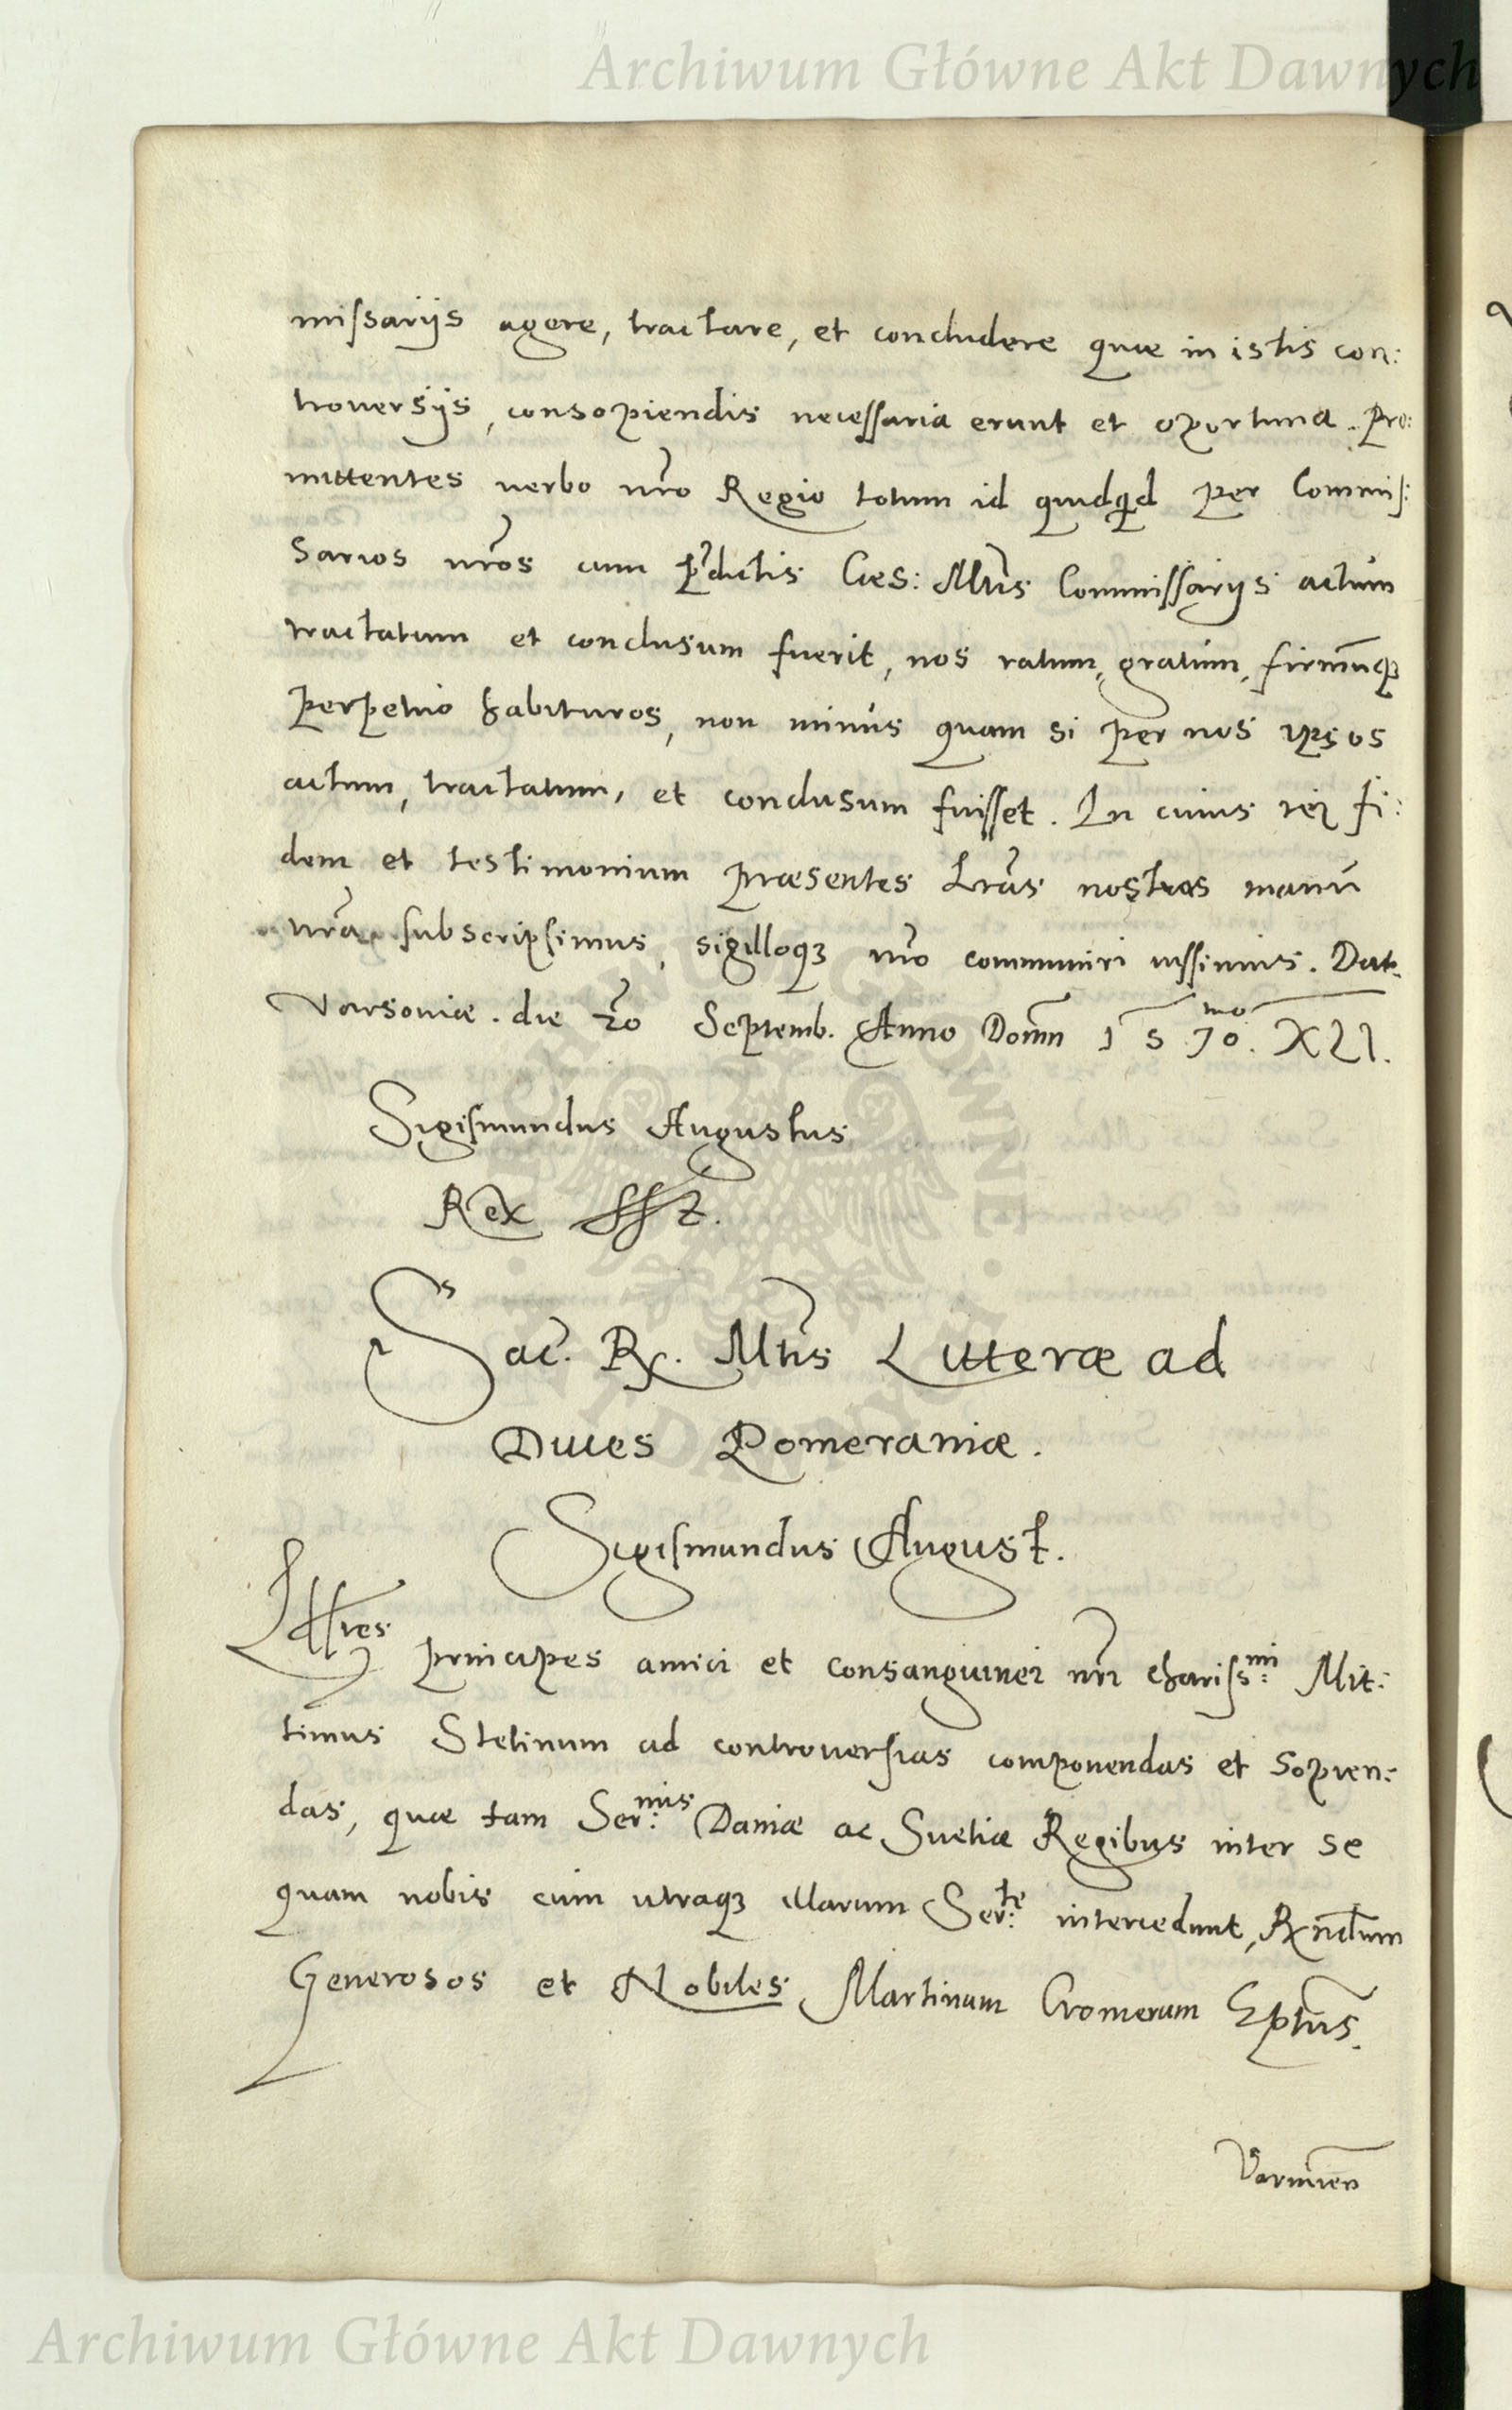 Archiwum Główne Akt Dawnych
missarijs agere, tractare, et concludere quae in istis con:
trouersijs, consopiendis necessaria erunt et oportuna. Pro:
mittentes uerbo nro Regio totum id quidqd per Commis:
sarios nros cum pdictis Caes: Mtis Commissarijs actum
tractatum et conclusum fuerit, nos ratum, gratum, firmumq3
perpetuo habituros, non minus quam si per nos ipsos
actum, tractatum, et conclusum fuisset. In cuius rei fi:
dem et testimonium praesentes Lras nostras manu
nra subscripsimus, sigilloq3 nro communiri iussimus. Dat.
Varsoviae. die 20 Septemb. Anno Domn 1570. mo XLI.
Sigismundus Augustus
Rex sst.
Sac. R. Mtis Litterae ad
Duces Pomeraniae.
Sigismundus August.
Illtres principes amici et consanguinei nri chariss:mi Mit:
timus Stetinum ad controuersias componendas et sopien:
das, quae tam Ser:mis Daniae ac Suetiae Regibus inter se
quam nobis cum utraq3 illarum Ser:te intercedunt, Rndum
Generosos et Nobiles Martinum Cromerum Eptum.
Varmien
ARCHIWUM GŁÓWNE AKT DAWNYCH
Archiwum Główne Akt Dawnych